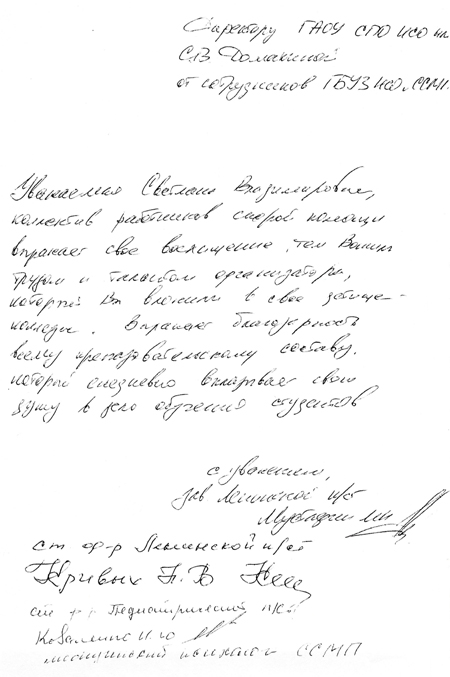 Директору ГАОУ СПО НСО
С.В. Домахиной
от сотрудников ГБУЗ НСО "ССМП
Уважаемая Светлана Владимировна,
коллектив работников скорой помощи
выражает свое восхищение тем Вашим
трудом и талантом организатора,
который Вы вложили в свое детище -
колледж. Выражает благодарность
всему преподавательскому составу,
который ежедневно вкладывает свою
душу в дело обучения студентов
с уважением,
зав Ленинской п/ст
ст ф-р Ленинской п/ст
Кривых Н.В
ст ф-р Педиатрической п/ст
И.Ю
медицинский психолог ССМП